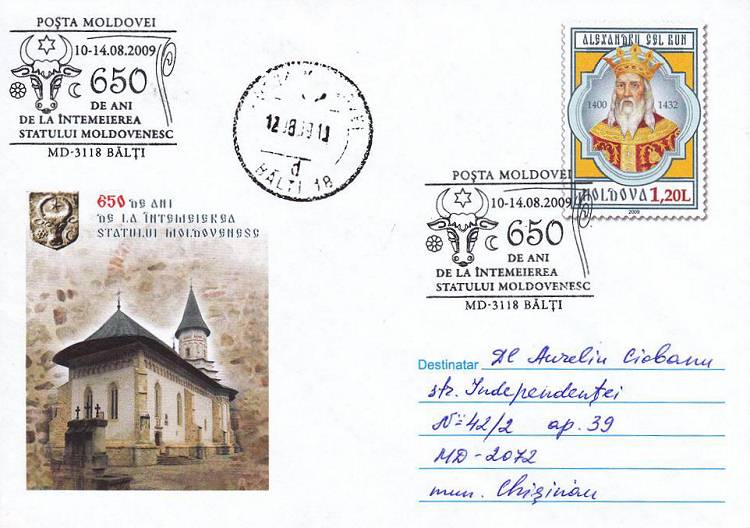 POȘTA MOLDOVEI
10-14.08.2009
650
DE ANI
DE LA ÎNTEMEIEREA
STATULUI MOLDOVENESC
MD-3118 BĂLȚI
12.08.09
d
BĂLȚI 18
ALEXANDRU CEL BUN
1400 1432
MOLDOVA 1,20L
2009
POȘTA MOLDOVEI
10-14.08.2009
650
DE ANI
DE LA ÎNTEMEIEREA
STATULUI MOLDOVENESC
MD-3118 BĂLȚI
650 DE ANI
DE LA ÎNTEMEIEREA
STATULUI MOLDOVENESC
Destinatar Dl Aureliu Ciobanu
str. Independenței
N=42/2 ap. 39
MD-2072
mun. Chișinău